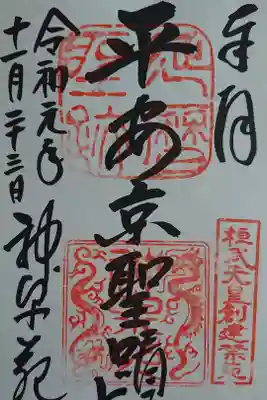 奉拝
桓武天皇創建禁苑
平安京聖晴
令和元年
十一月二十三日
神泉苑